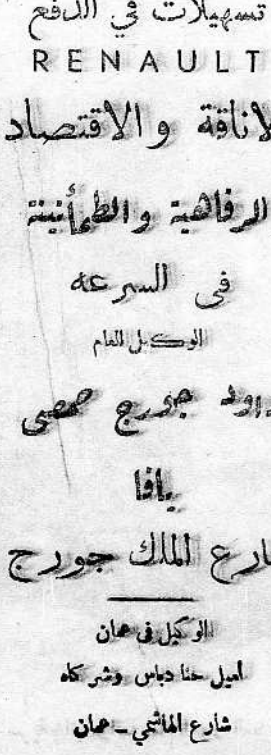 تسهيلات في الدفع
RENAULT
لاناقة والاقتصاد
الرفاهية والطمأنينة
في السرعه
الوكيل العام
داود جورج حمصي
يافا
ارع الملك جورج
الوكيل في عمان
اميل حنا دباس وشركاه
شارع الهاشمي - عمان